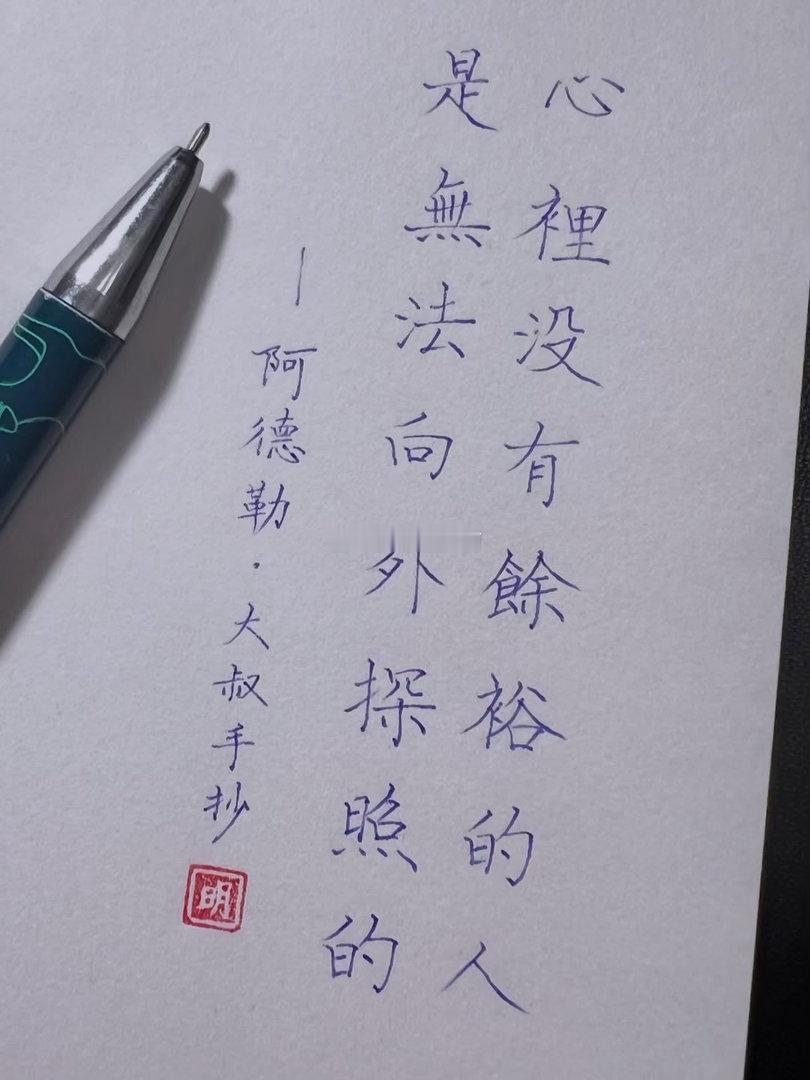 心裡没有餘裕的人
是無法向外探照的
—阿德勒·大叔手抄
明